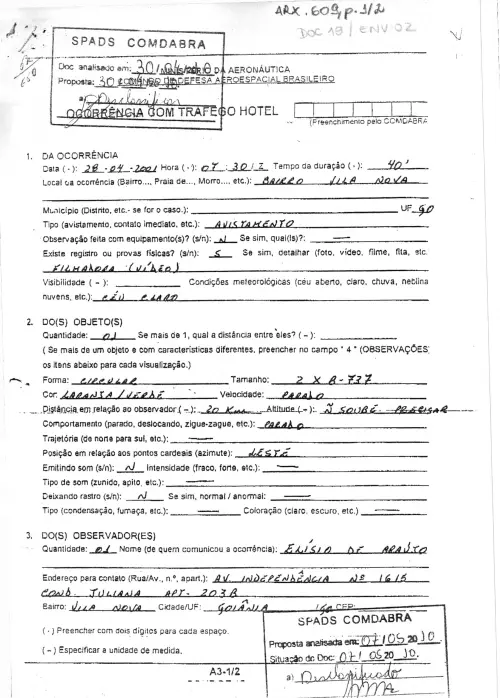 ARX. 609, p. 1/2
DOC 19 / ENV 02
SPADS COMDABRA
Doc analisado em: 30/04/2010
MINISTÉRIO DA AERONÁUTICA
Proposta:
COMANDO DE DEFESA AEROESPACIAL BRASILEIRO
a) Desclassificar
OCORRÊNCIA COM TRAFEGO HOTEL
(Preenchimento pelo COMDABRA
1. DA OCORRÊNCIA
Data (·): 28-04-2001 Hora (·): 07:30/Z Tempo da duração (·): 40'
Local da ocorrência (Bairro..., Praia de..., Morro..., etc.): BAIRRO VILA NOVA
Município (Distrito, etc.- se for o caso.): UF GO
Tipo (avistamento, contato imediato, etc.): AVISTAMENTO
Observação feita com equipamento(s)? (s/n): N Se sim, qual(is)?: —
Existe registro ou provas físicas? (s/n): S Se sim, detalhar (foto, vídeo, filme, fita, etc.
FILMADORA (VÍDEO)
Visibilidade ( – ): Condições meteorológicas (céu aberto, claro, chuva, neblina
nuvens, etc.): CÉU CLARO
2. DO(S) OBJETO(S)
Quantidade: 01 Se mais de 1, qual a distância entre eles? ( – ):
( Se mais de um objeto e com características diferentes, preencher no campo " 4 " (OBSERVAÇÕES)
os itens abaixo para cada visualização.)
Forma: CIRCULAR Tamanho: 2 X B-737
Cor: LARANJA / VERDE Velocidade: PARADO
Distância em relação ao observador ( – ): 20 Km Altitude ( – ): Ñ SOUBE PRECISAR
Comportamento (parado, deslocando, zigue-zague, etc.): PARADO
Trajetória (de norte para sul, etc.): —
Posição em relação aos pontos cardeais (azimute): LESTE
Emitindo som (s/n): N Intensidade (fraco, forte, etc.): —
Tipo de som (zunido, apito, etc.): —
Deixando rastro (s/n): N Se sim, normal / anormal: —
Tipo (condensação, fumaça, etc.): — Coloração (claro, escuro, etc.) —
3. DO(S) OBSERVADOR(ES)
Quantidade: 01 Nome (de quem comunicou a ocorrência): ELISIO DE ARAÚJO
Endereço para contato (Rua/Av., n.º, apart.): AV. INDEPENDÊNCIA Nº 1615
COND. JULIANA APT- 203B
Bairro: VILA NOVA Cidade/UF: GOIÂNIA /GO CEP:
( · ) Preencher com dois dígitos para cada espaço.
( – ) Especificar a unidade de medida.
SPADS COMDABRA
Proposta analisada em: 07/05/2010
Situação do Doc: 07/05/2010.
a) Desclassificado
A3-1/2